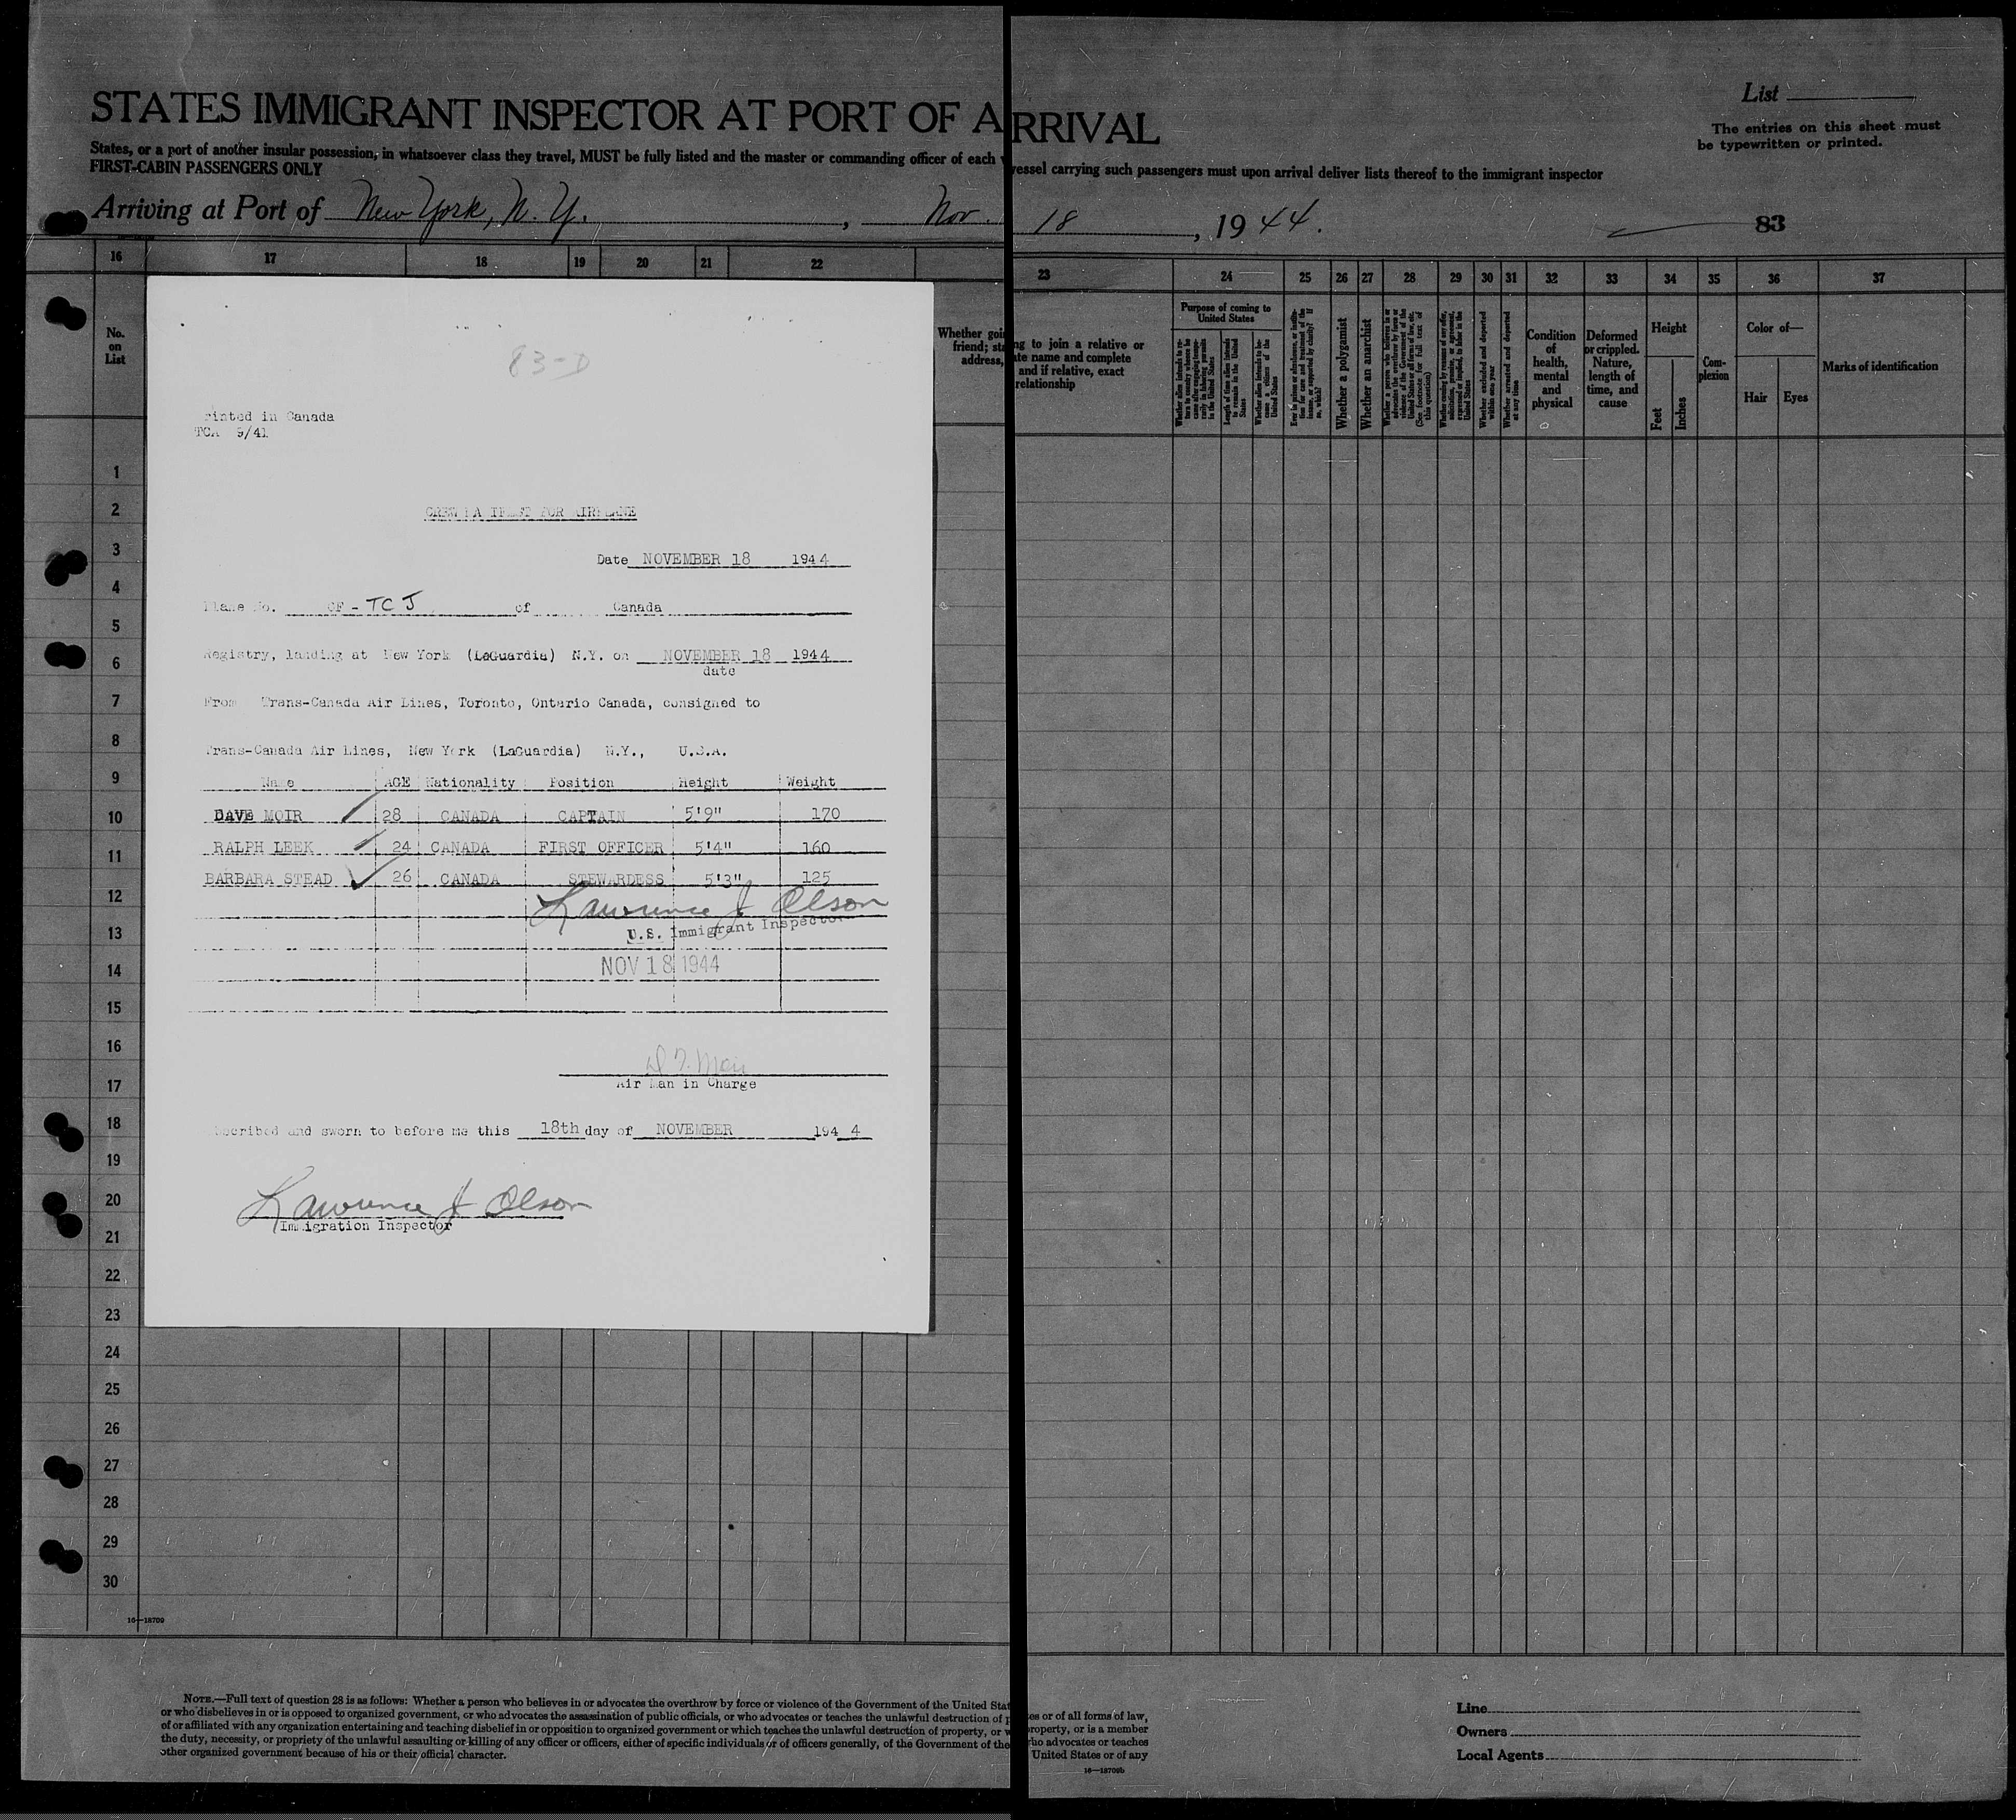 STATES IMMIGRANT INSPECTOR AT PORT OF ARRIVAL
List
The entries on this sheet must
be typewritten or printed.
States, or a port of another insular possession, in whatsoever class they travel, MUST be fully listed and the master or commanding officer of each vessel carrying such passengers must upon arrival deliver lists thereof to the immigrant inspector
FIRST-CABIN PASSENGERS ONLY
Arriving at Port of New York, N. Y. , Nov. 18 , 1944.
83
16 17 18 19 20 21 22 23 24 25 26 27 28 29 30 31 32 33 34 35 36 37
No.
on
List
Whether going to join a relative or
friend; state name and complete
address, and if relative, exact
relationship
Purpose of coming to
United States
Whether a polygamist
Whether an anarchist
Whether excluded and deported
within one year
Whether arrested and deported
at any time
Condition
of
health,
mental
and
physical
Deformed
or crippled.
Nature,
length of
time, and
cause
Height
Feet
Inches
Com-
plexion
Color of—
Hair
Eyes
Marks of identification
83-D
rinted in Canada
TCA 9/41
CREW MA IFEST FOR AIRPLANE
Date NOVEMBER 18 1944
Plane No. CF-TCJ of Canada
Registry, landing at New York (LaGuardia) N.Y. on NOVEMBER 18 1944
date
From Trans-Canada Air Lines, Toronto, Ontario Canada, consigned to
Trans-Canada Air Lines, New York (LaGuardia) N.Y., U.S.A.
Name AGE Nationality Position Height Weight
DAVE MOIR 28 CANADA CAPTAIN 5'9" 170
RALPH LEEK 24 CANADA FIRST OFFICER 5'4" 160
BARBARA STEAD 26 CANADA STEWARDESS 5'3" 125
Lawrence J Olson
U.S. Immigrant Inspector
NOV 18 1944
Air Man in Charge
scribed and sworn to before me this 18th day of NOVEMBER 194 4
Lawrence J Olson
Immigration Inspector
1
2
3
4
5
6
7
8
9
10
11
12
13
14
15
16
17
18
19
20
21
22
23
24
25
26
27
28
29
30
16—18709
NOTE.—Full text of question 28 is as follows: Whether a person who believes in or advocates the overthrow by force or violence of the Government of the United States or of all forms of law,
or who disbelieves in or is opposed to organized government, or who advocates the assassination of public officials, or who advocates or teaches the unlawful destruction of property, or is a member
of or affiliated with any organization entertaining and teaching disbelief in or opposition to organized government or which teaches the unlawful destruction of property, or who advocates or teaches
the duty, necessity, or propriety of the unlawful assaulting or killing of any officer or officers, either of specific individuals or of officers generally, of the Government of the United States or of any
other organized government because of his or their official character.
16—18709b
Line
Owners
Local Agents